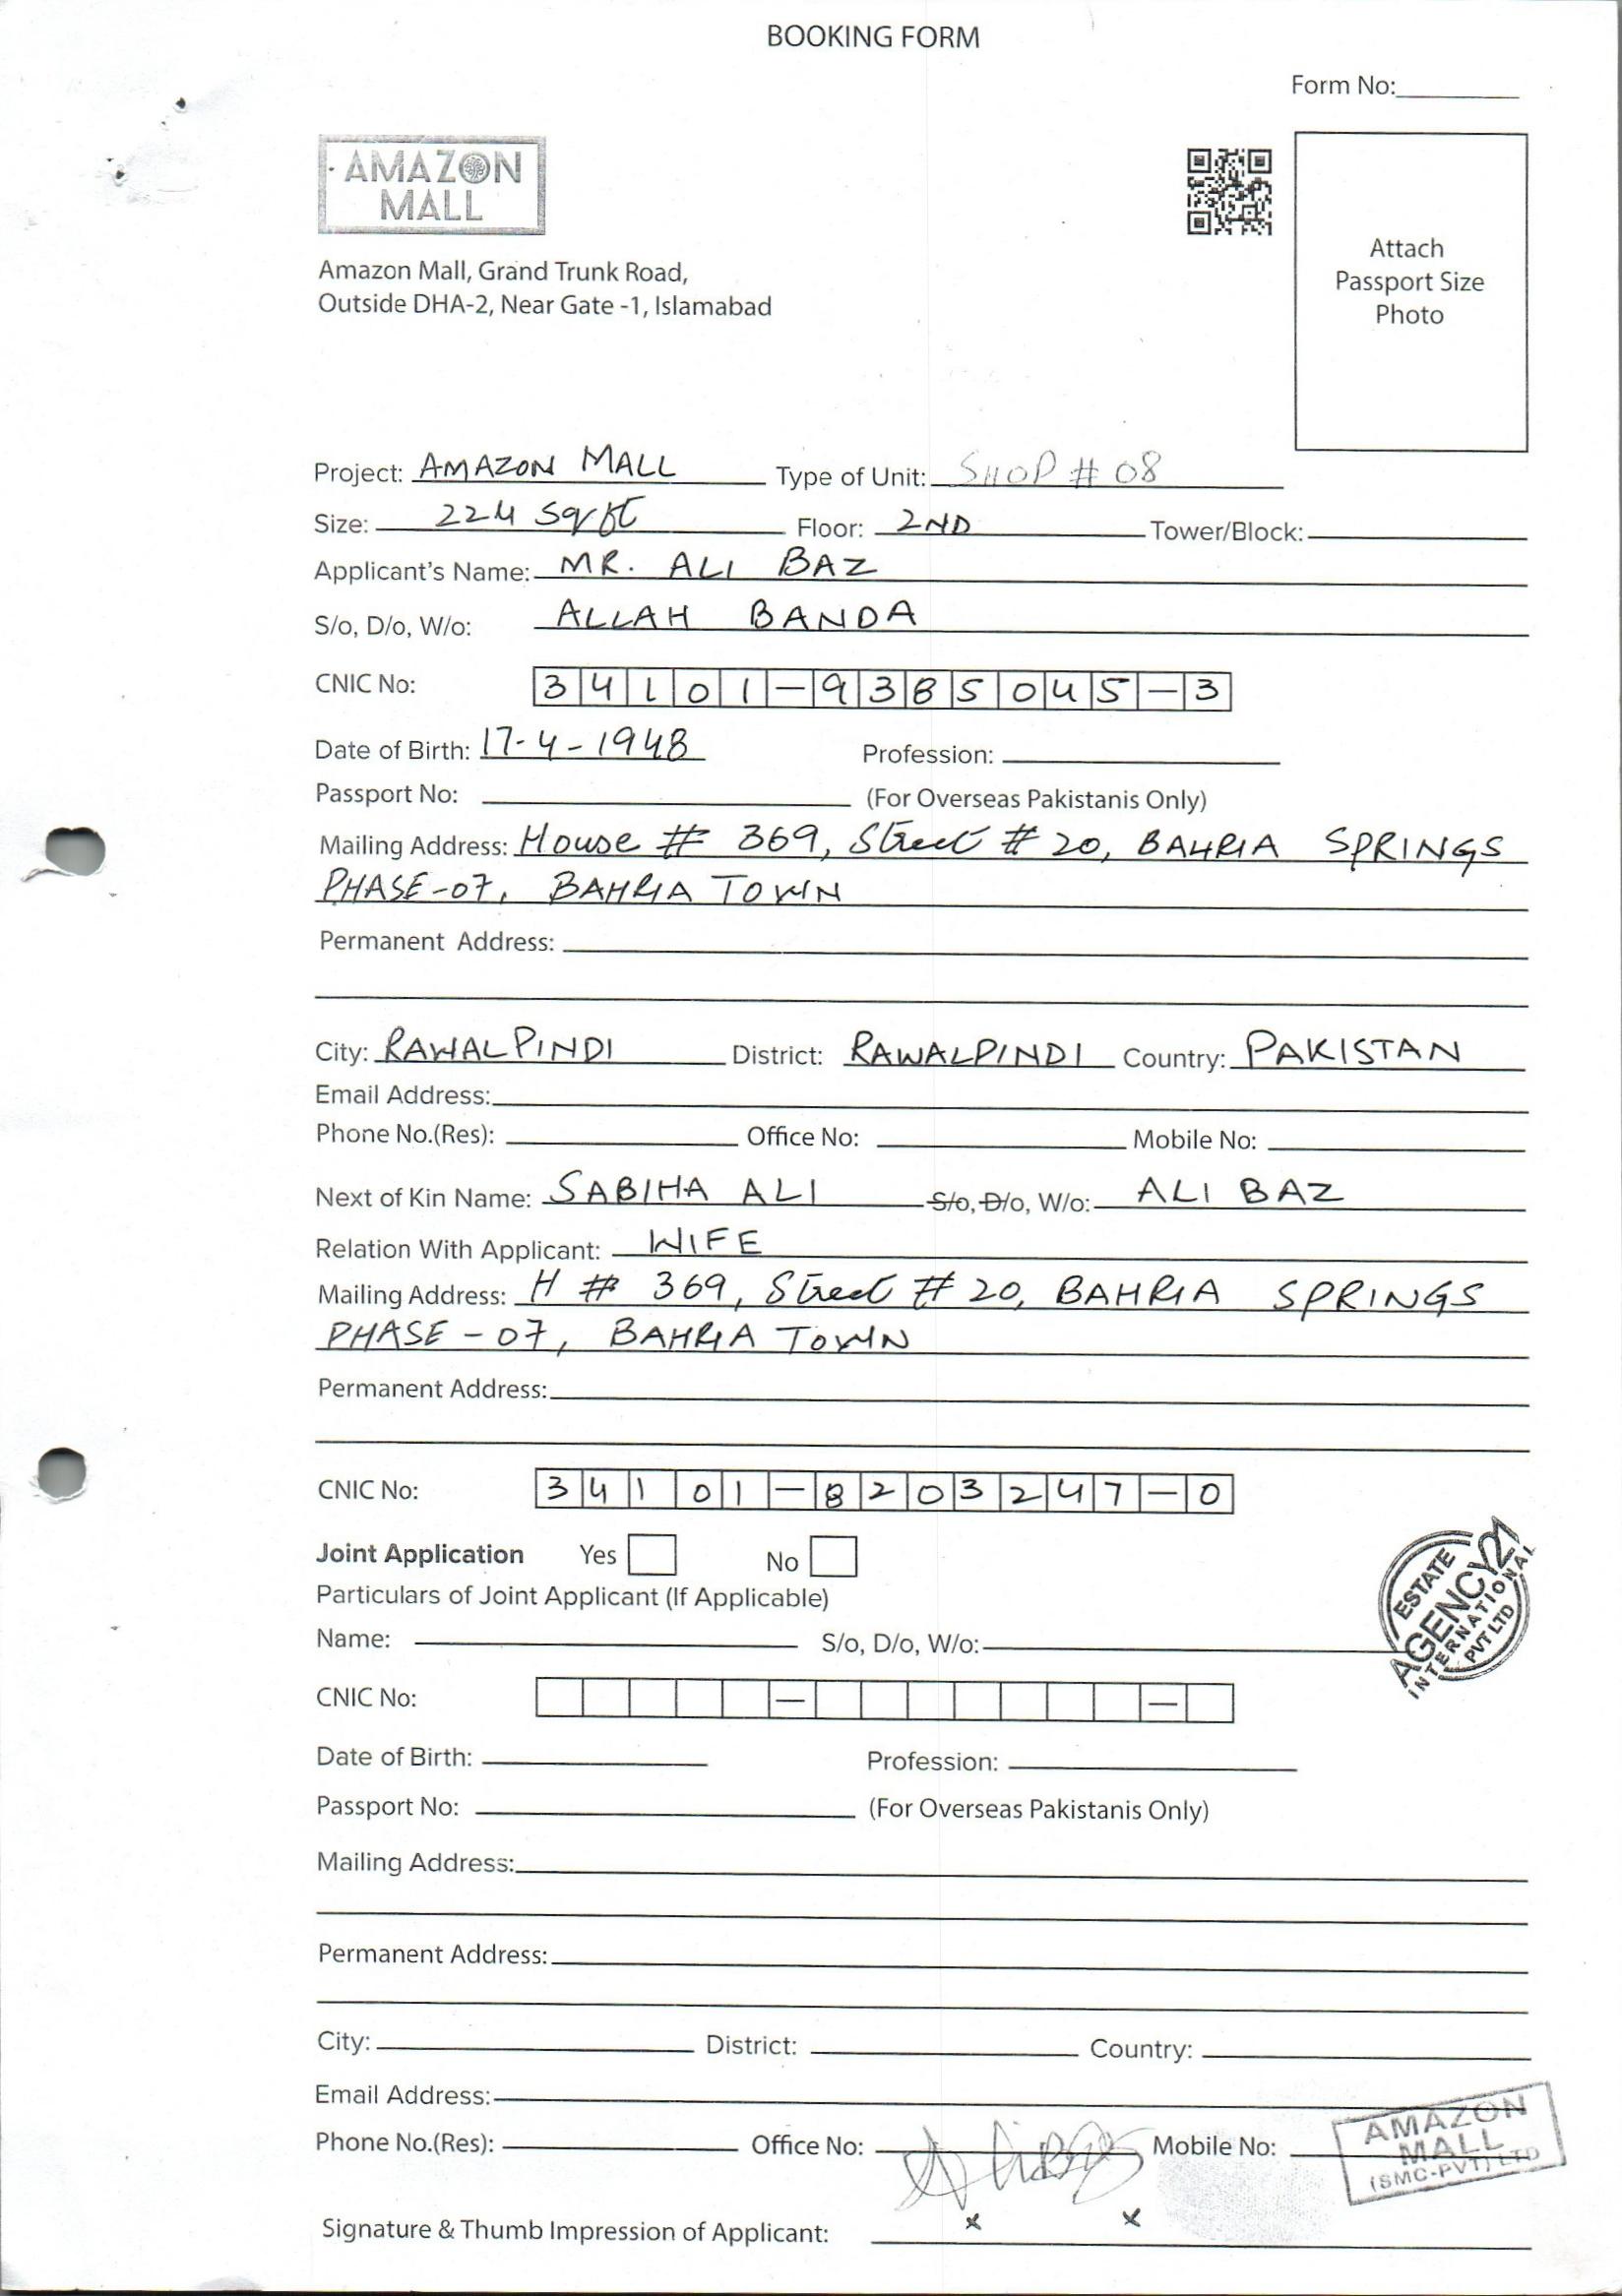 BOOKING FORM
Form No:
AMAZON
MALL
Amazon Mall, Grand Trunk Road,
Outside DHA-2, Near Gate -1, Islamabad
Attach
Passport Size
Photo
Project: AMAZON MALL Type of Unit: SHOP # 08
Size: 224 Sqrft Floor: 2ND Tower/Block:
Applicant's Name: MR. ALI BAZ
S/o, D/o, W/o: ALLAH BANDA
CNIC No: 34101-9385045-3
Date of Birth: 17-4-1948 Profession:
Passport No: (For Overseas Pakistanis Only)
Mailing Address: House # 369, Street # 20, BAHRIA SPRINGS
PHASE-07, BAHRIA TOWN
Permanent Address:
City: RAWALPINDI District: RAWALPINDI Country: PAKISTAN
Email Address:
Phone No.(Res): Office No: Mobile No:
Next of Kin Name: SABIHA ALI S/o, D/o, W/o: ALI BAZ
Relation With Applicant: WIFE
Mailing Address: H # 369, Street # 20, BAHRIA SPRINGS
PHASE - 07, BAHRIA TOWN
Permanent Address:
CNIC No: 34101-8203247-0
Joint Application Yes No
Particulars of Joint Applicant (If Applicable)
Name: S/o, D/o, W/o:
ESTATE
AGENCY21
INTERNATIONAL
PVT LTD
CNIC No: - -
Date of Birth: Profession:
Passport No: (For Overseas Pakistanis Only)
Mailing Address:
Permanent Address:
City: District: Country:
Email Address:
Phone No.(Res): Office No: Mobile No:
AMAZON
MALL
(SMC-PVT) LTD
Signature & Thumb Impression of Applicant: x x